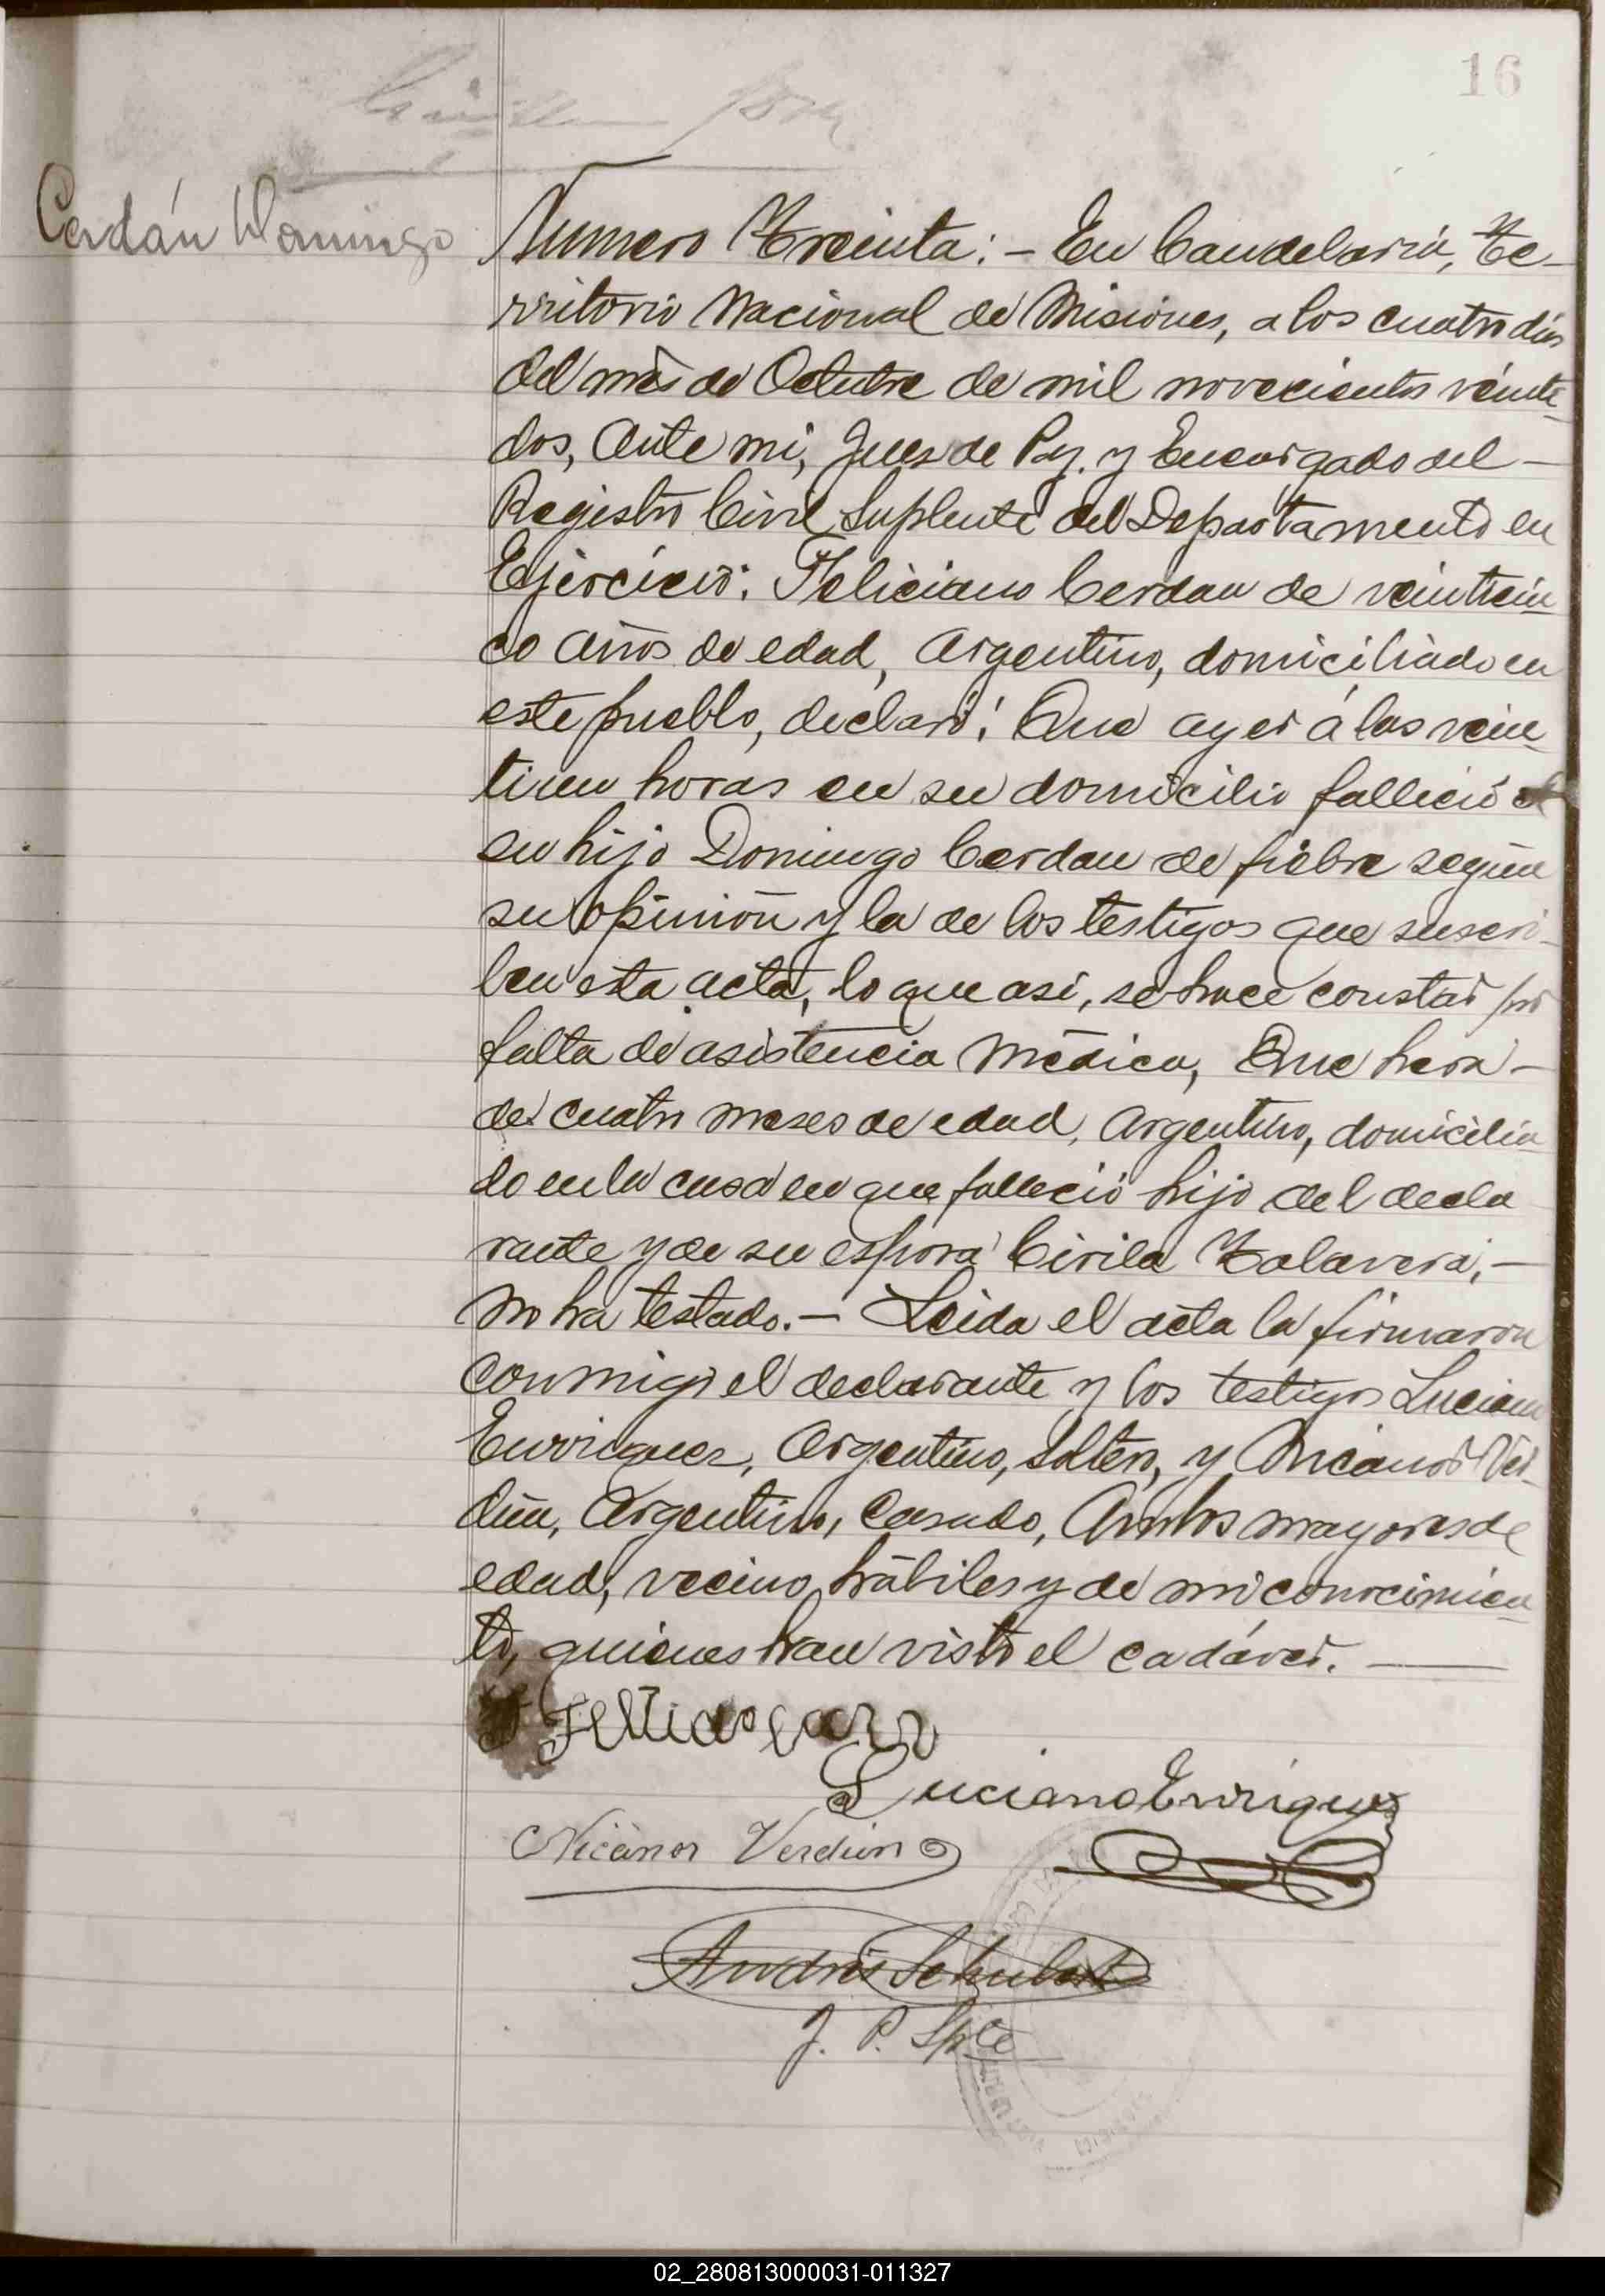 16
Cerdán Domingo
Numero Treinta: - En Candelaria, Te-
rritorio Nacional de Misiones, a los cuatro dias
del mes de Octubre de mil novecientos veinte
dos, Ante mi, Juez de Paz. y Encargado del -
Registro Civil Suplente del Departamento en
Ejercicio: Feliciano Cerdan de veinticin
co años de edad, Argentino, domiciliado en
este pueblo, declaró: Que ayer á las vein
tiun horas en su domicilio falleció
su hijo Domingo Cerdan de fiebre según
su opinión y la de los testigos que suscri-
ben esta acta, lo que asi, se hace constar por
falta de asistencia médica, Que hera -
de cuatro meses de edad, Argentino, domicilia
do en la casa en que falleció hijo del decla
rante y de su esposa Cirila Talavera, -
no ha testado. - Leida el acta la firmaron
conmigo el declarante y los testigos Luciano
Enrriquez, Argentino, Soltero, y Nicanor Ver-
dún, Argentino, Casado, Ambos mayores de
edad, vecino, hábiles y de mi conocimien
to, quienes han visto el cadáver. -
Luciano Enrriquez
Nicanor Verdun
Andrés Schubert
J. P. Splte
02_280813000031-011327